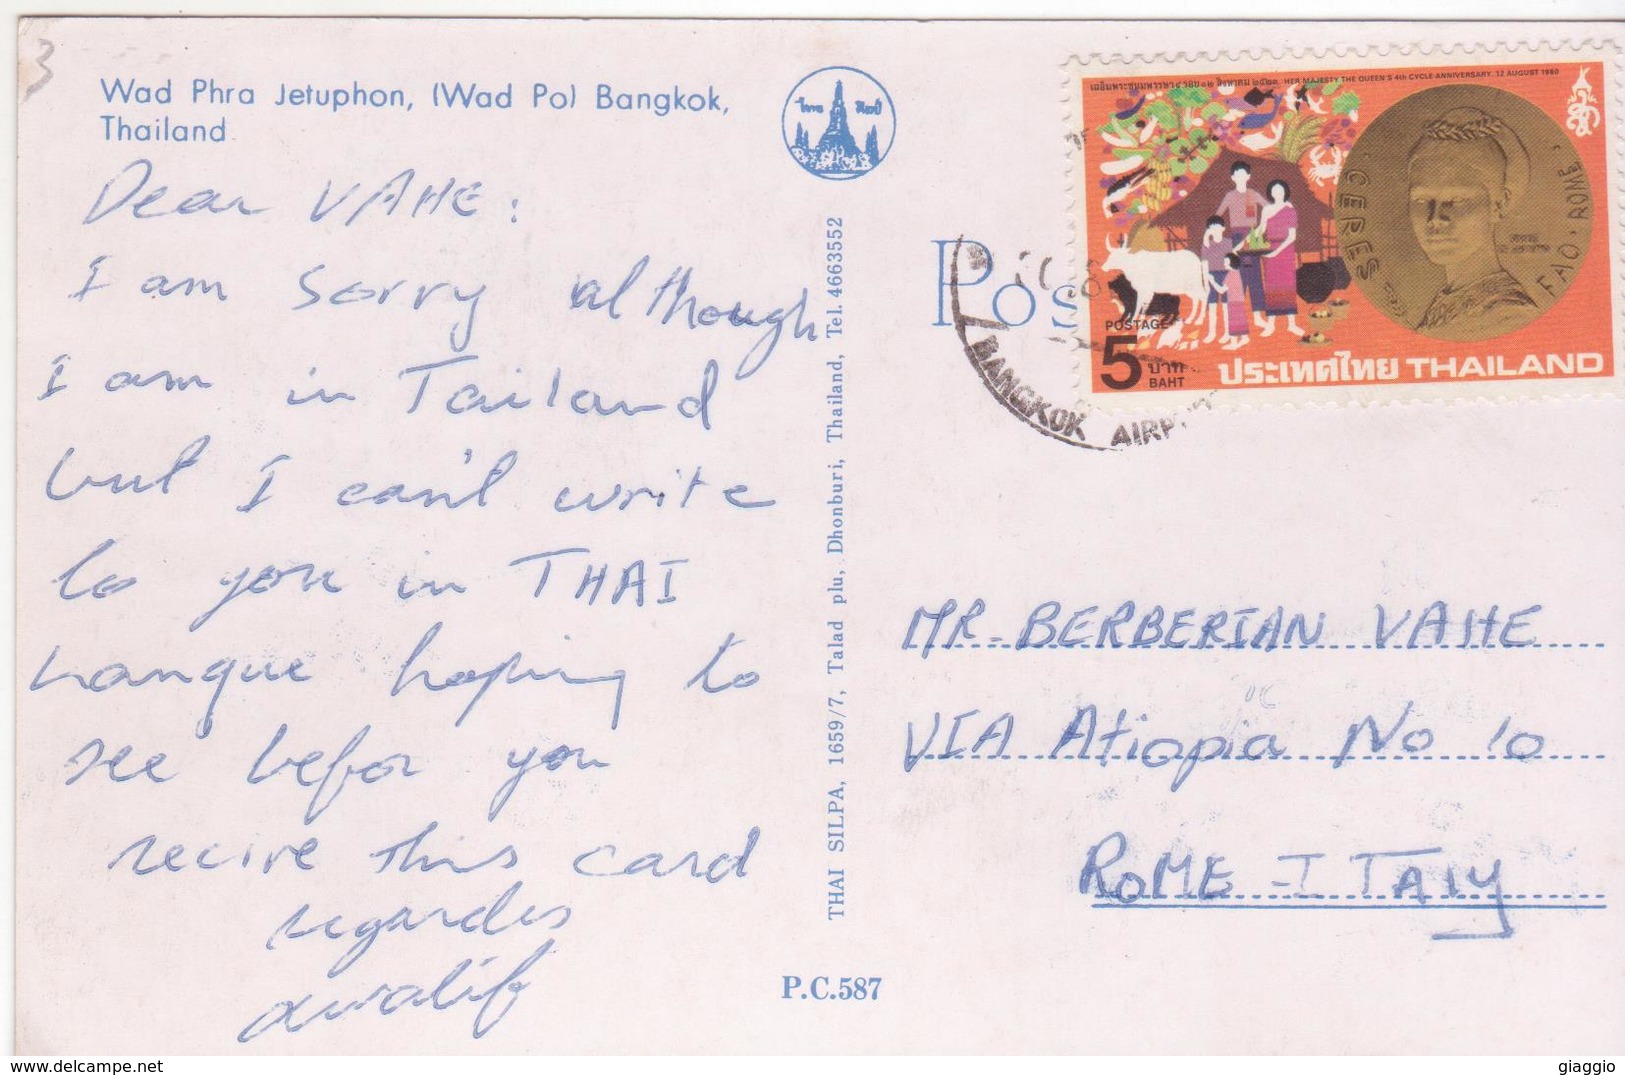 3
Wad Phra Jetuphon, (Wad Po) Bangkok,
Thailand
ไทย ศิลป์
Dear VAHE:
I am sorry although
I am in Tailand
but I can't write
to you in THAI
langue hoping to
see befor you
recive this card
regardes
THAI SILPA, 1659/7, Talad plu, Dhonburi, Thailand, Tel. 4663552
P.C.587
Pos
BANGKOK AIRP
เฉลิมพระชนมพรรษา ๔ รอบ ๑๒ สิงหาคม ๒๕๒๓ HER MAJESTY THE QUEEN'S 4th CYCLE ANNIVERSARY. 12 AUGUST 1980
CERES
FAO·ROME·
POSTAGE
5 บาท
BAHT
ประเทศไทย THAILAND
MR. BERBERIAN VAHE
VIA Atiopia No 10
ROME - ITALY
giaggio